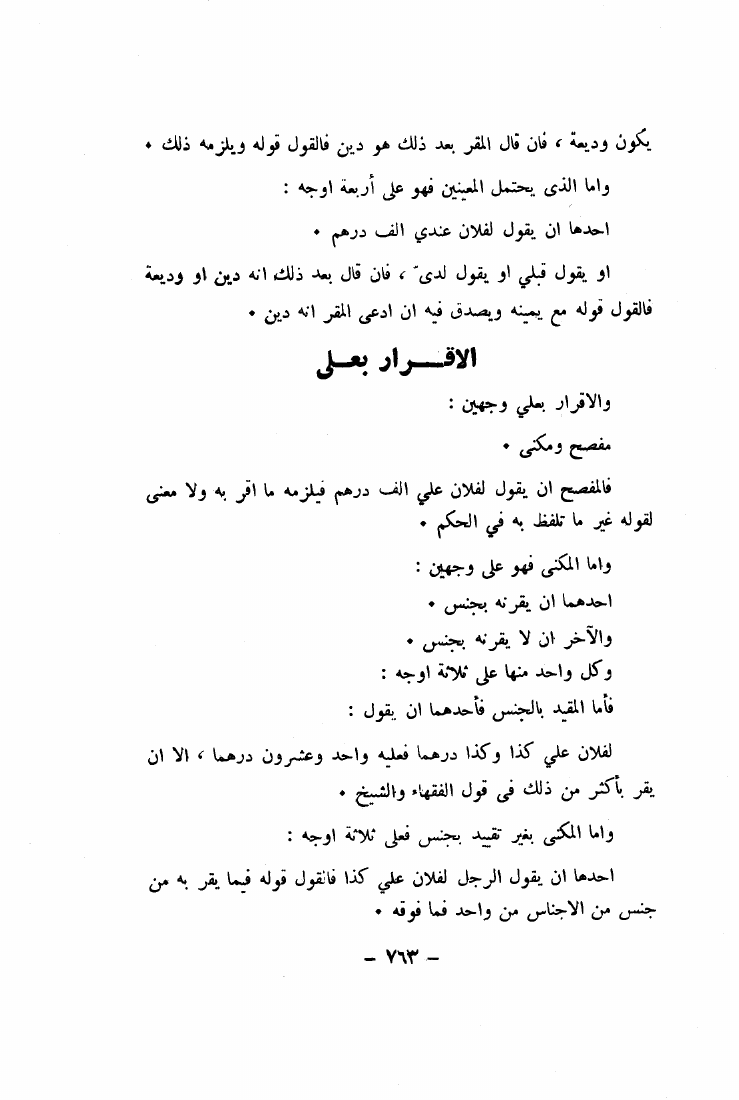 يكون وديعة ، فان قال المقر بعد ذلك هو دين فالقول قوله ويلزمه ذلك ٠
واما الذى يحتمل المعينين فهو على أربعة اوجه :
احدها ان يقول لفلان عندي الف درهم ٠
او يقول قبلي او يقول لدىّ ، فان قال بعد ذلك انه دين او وديعة
فالقول قوله مع يمينه ويصدق فيه ان ادعى المقر انه دين ٠
الاقـــرار بعــلى
والاقرار بعلي وجهين :
مفصح ومكنى ٠
فالمفصح ان يقول لفلان علي الف درهم فيلزمه ما اقر به ولا معنى
لقوله غير ما تلفظ به في الحكم ٠
واما المكنى فهو على وجهين :
احدهما ان يقرنه بجنس ٠
والآخر ان لا يقرنه بجنس ٠
وكل واحد منها على ثلاثة اوجه :
فأما المقيد بالجنس فأحدهما ان يقول :
لفلان علي كذا وكذا درهما فعليه واحد وعشرون درهما ، الا ان
يقر بأكثر من ذلك فى قول الفقهاء والشيخ ٠
واما المكنى بغير تقييد بجنس فعلى ثلاثة اوجه :
احدها ان يقول الرجل لفلان علي كذا فالقول قوله فيما يقر به من
جنس من الاجناس من واحد فما فوقه ٠
– ٧٦٣ –